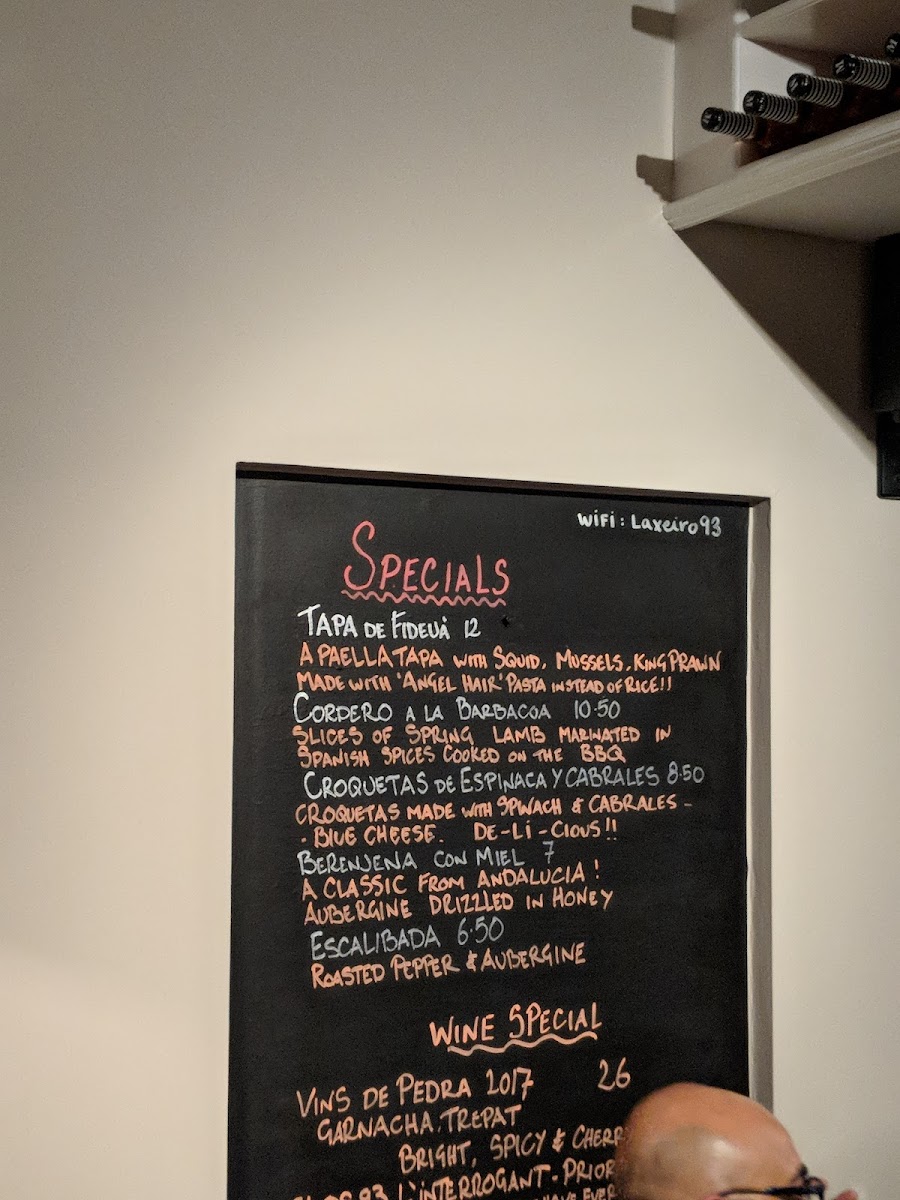 WiFi: Laxeiro93
SPECIALS
TAPA DE FIDEUÀ 12
A PAELLA TAPA WITH SQUID, MUSSELS, KING PRAWN
MADE WITH 'ANGEL HAIR' PASTA INSTEAD OF RICE!!
CORDERO A LA BARBACOA 10.50
SLICES OF SPRING LAMB MARINATED IN
SPANISH SPICES COOKED ON THE BBQ
CROQUETAS DE ESPINACA Y CABRALES 8.50
CROQUETAS MADE WITH SPINACH & CABRALES -
- BLUE CHEESE. DE-LI-CIOUS!!
BERENJENA CON MIEL 7
A CLASSIC FROM ANDALUCIA!
AUBERGINE DRIZZLED IN HONEY
ESCALIBADA 6.50
ROASTED PEPPER & AUBERGINE
WINE SPECIAL
VINS DE PEDRA 2017 26
GARNACHA, TREPAT
BRIGHT, SPICY & CHERR
L'INTERROGANT - PRIOR
HAVE EVER